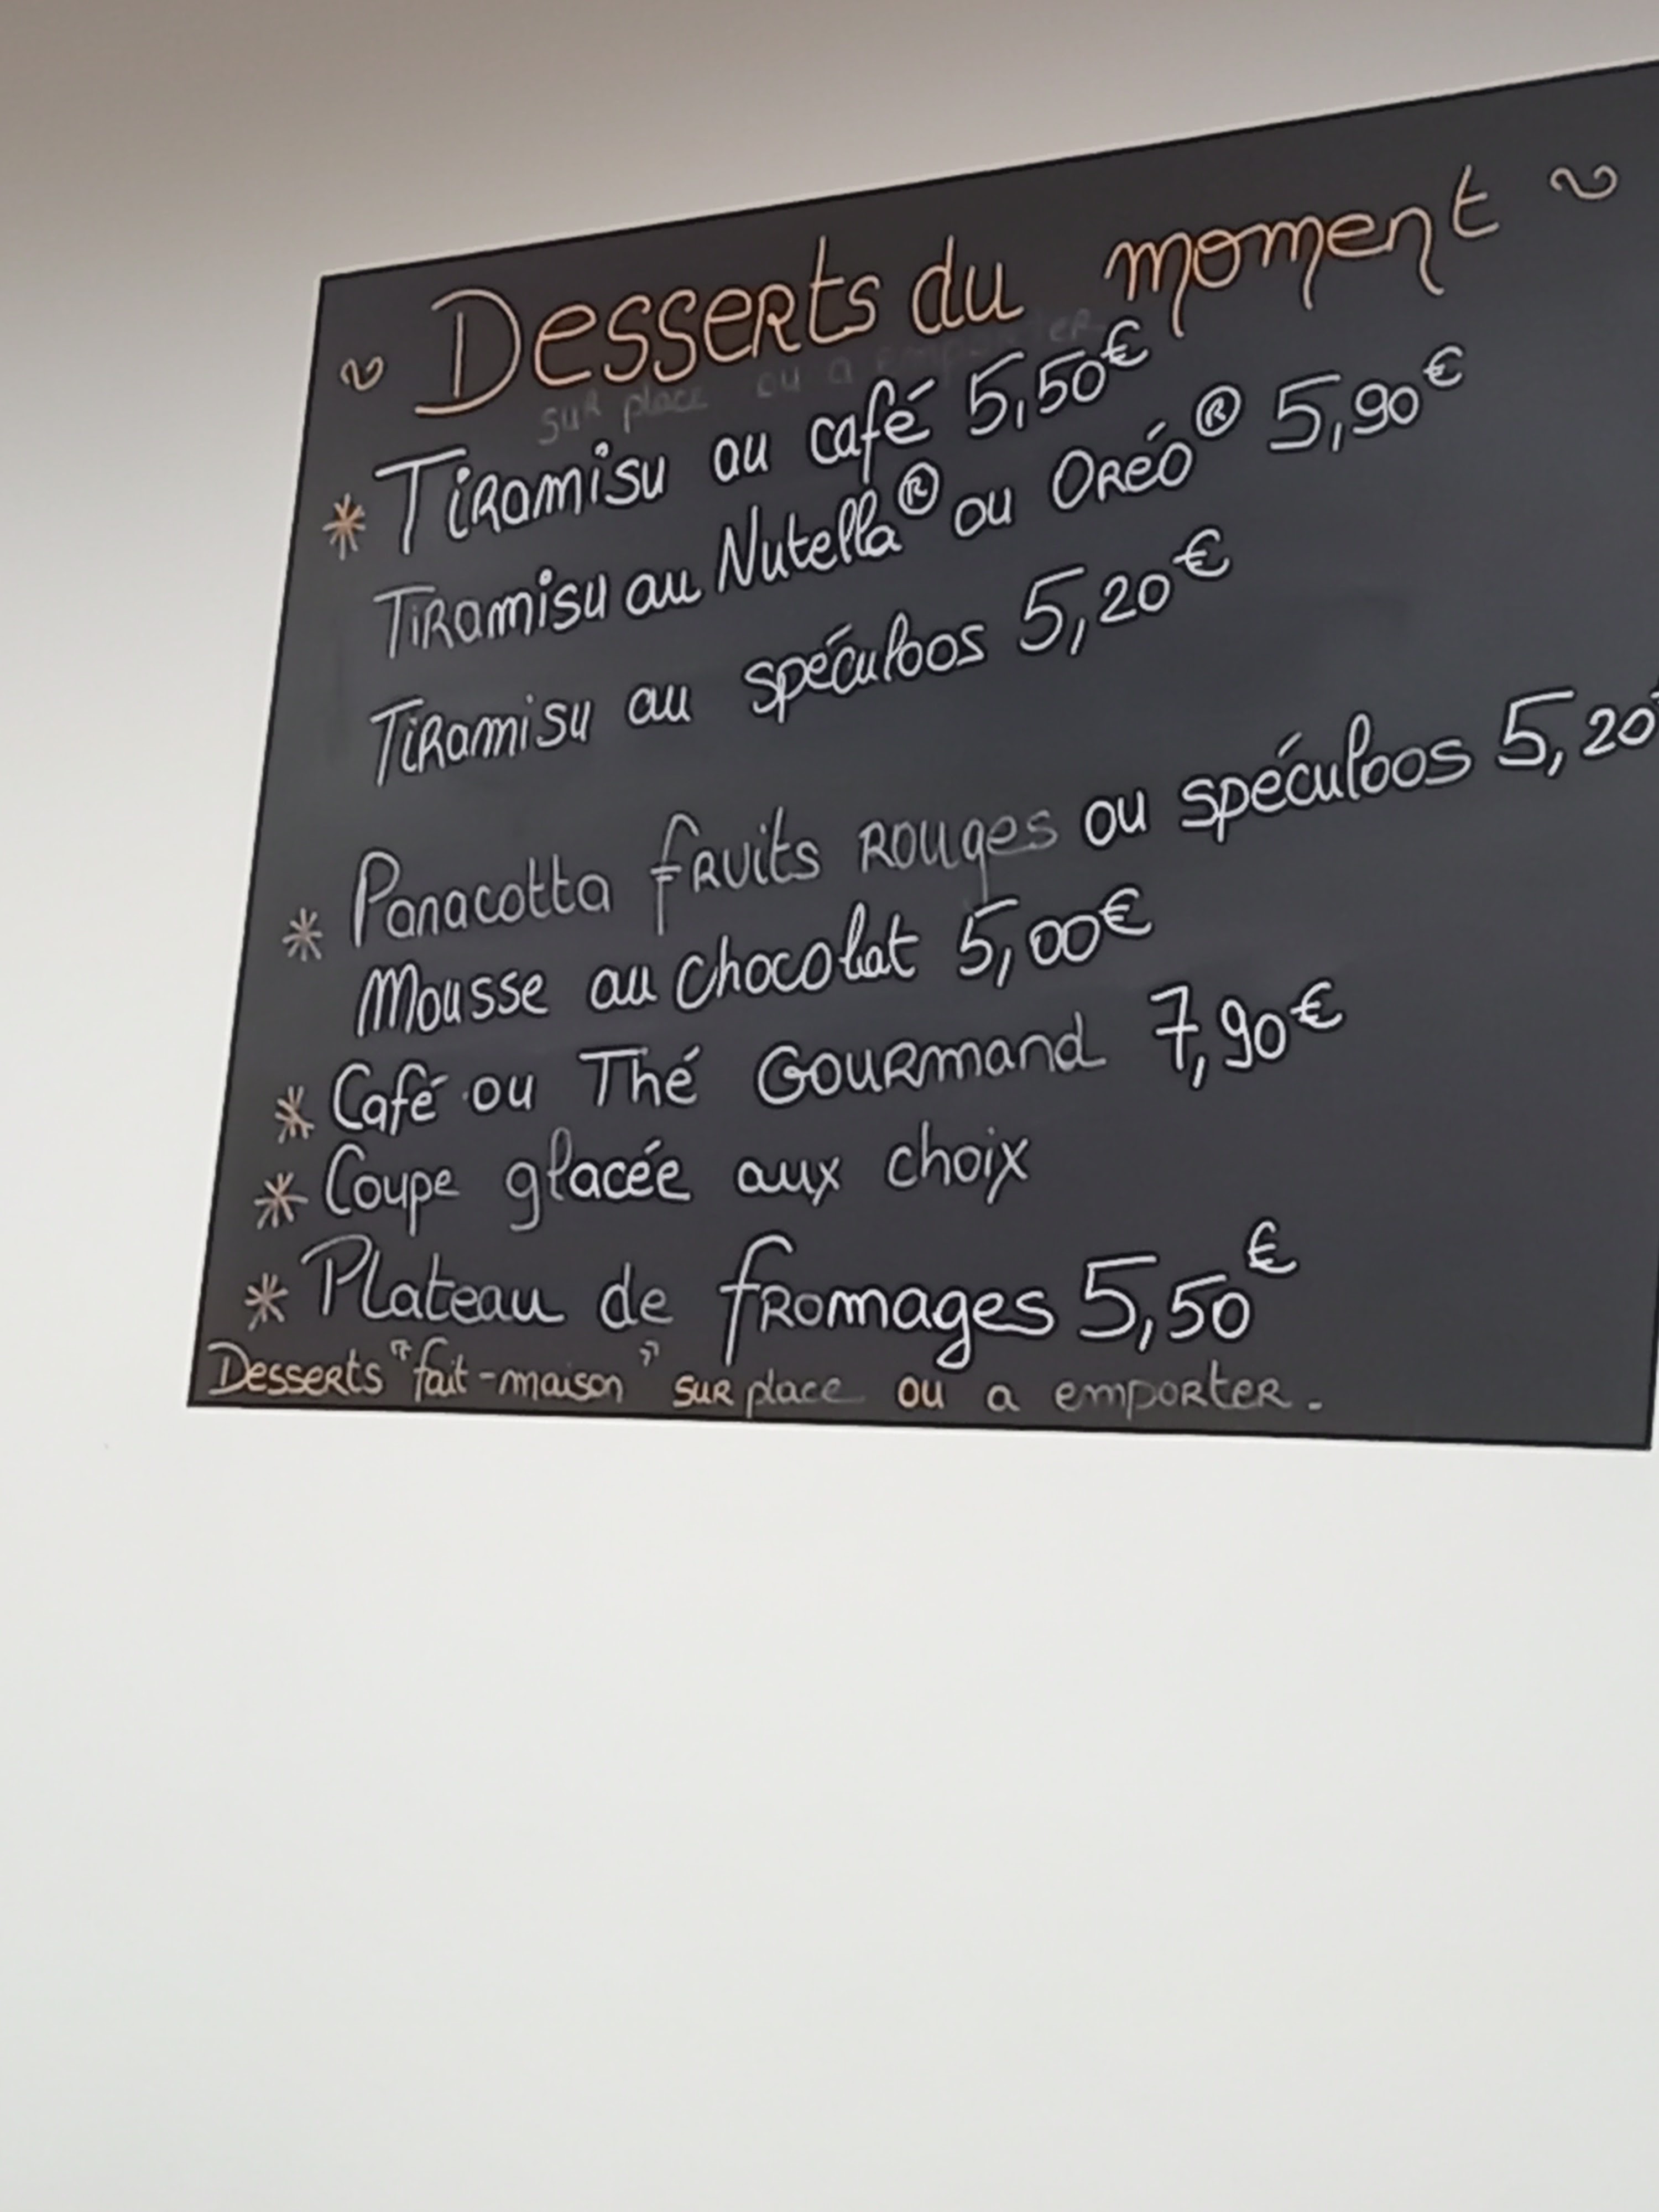 ~ Desserts du moment ~
sur place ou a emporter
* Tiramisu au café 5,50€
Tiramisu au Nutella® ou Oréo® 5,90€
Tiramisu au spéculoos 5,20€
* Panacotta fruits rouges ou spéculoos 5,20
Mousse au chocolat 5,00€
* Café ou Thé Gourmand 7,90€
* Coupe glacée aux choix
* Plateau de fromages 5,50€
Desserts "fait-maison" sur place ou a emporter.